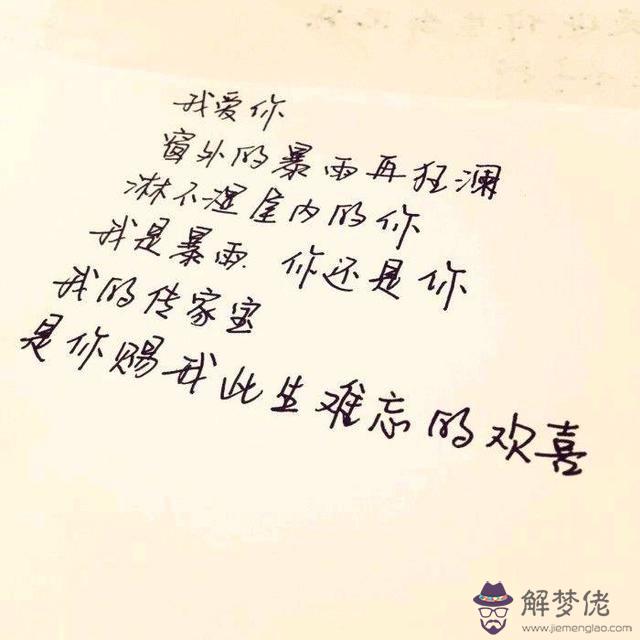 我爱你
窗外的暴雨再狂澜
淋不湿屋内的你
我是暴雨 你还是你
我的传家宝
是你赐我此生难忘的欢喜
解梦佬
www.jiemenglao.com